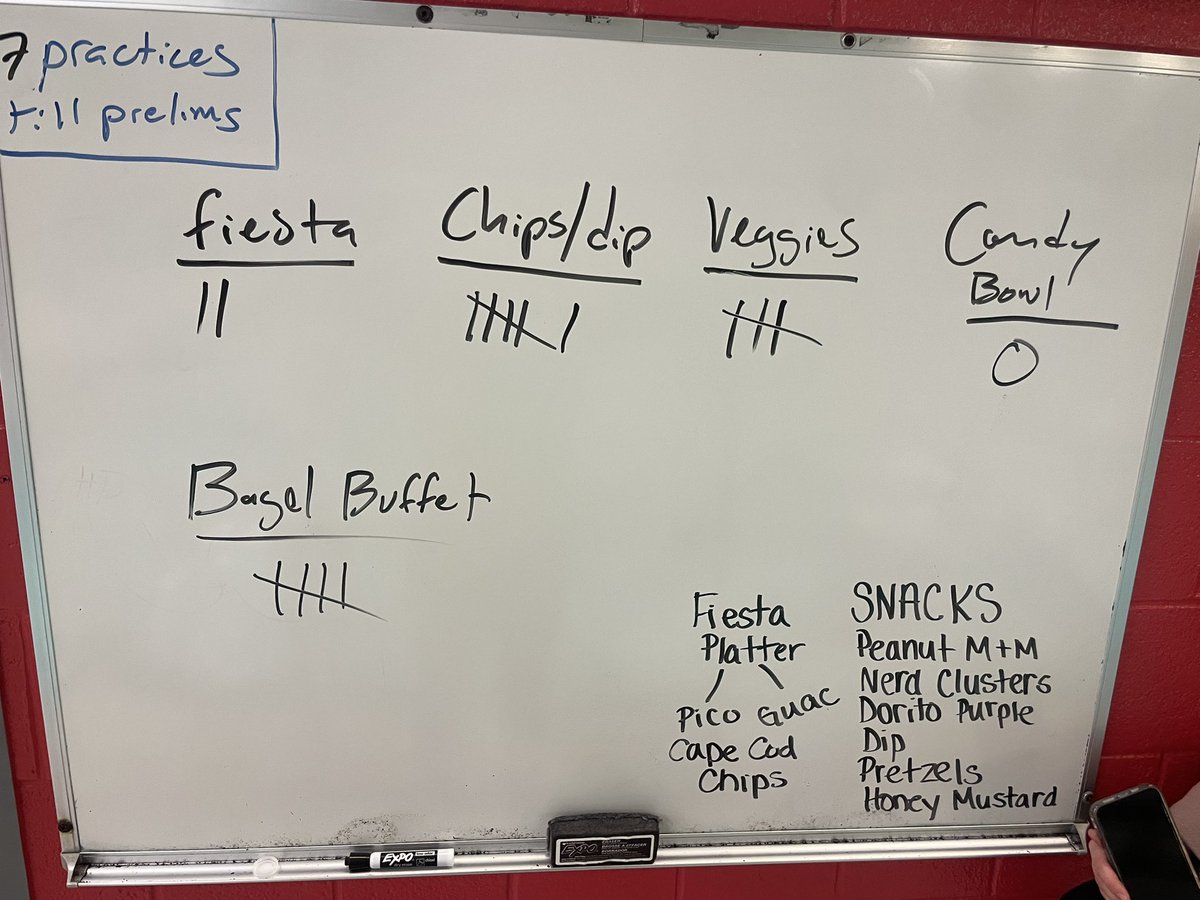 7 practices
till prelims
fiesta
Chips/dip
Veggies
Candy
Bowl
O
Bagel Buffet
Fiesta
Platter
Pico Guac
Cape Cod
Chips
SNACKS
Peanut M+M
Nerd Clusters
Dorito Purple
Dip
Pretzels
Honey Mustard
EXPO
EXPO